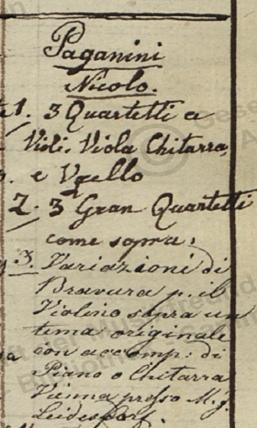 Paganini
Nicolo.
1. 3 Quartetti a
Violi. Viola Chitarra,
e Vcello
2. 3 Gran Quartetti
come sopra,
3. Variazioni di
Bravura p. il
Violino sopra un
tema originale
con accomp: di
Piano o Chitarra
Vienna presso M. J.
Leidesdorf.